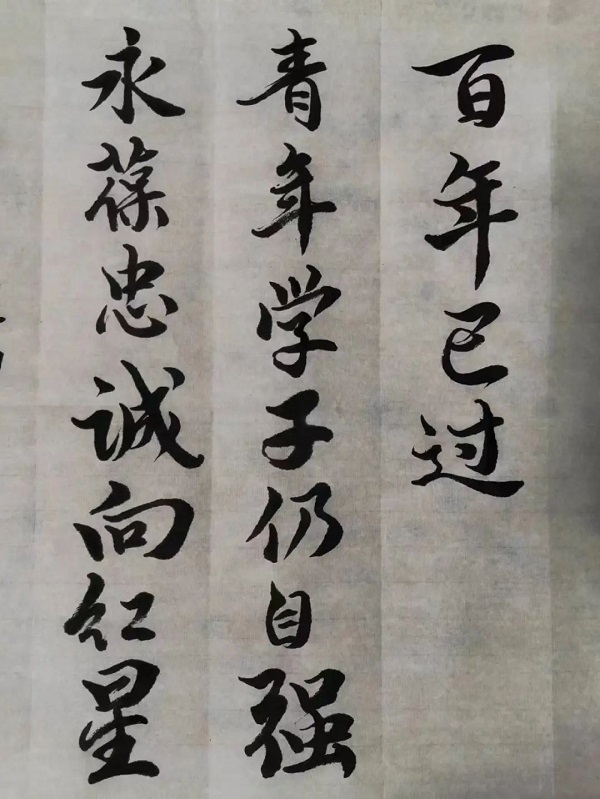 百年已过
青年学子仍自强
永葆忠诚向红星